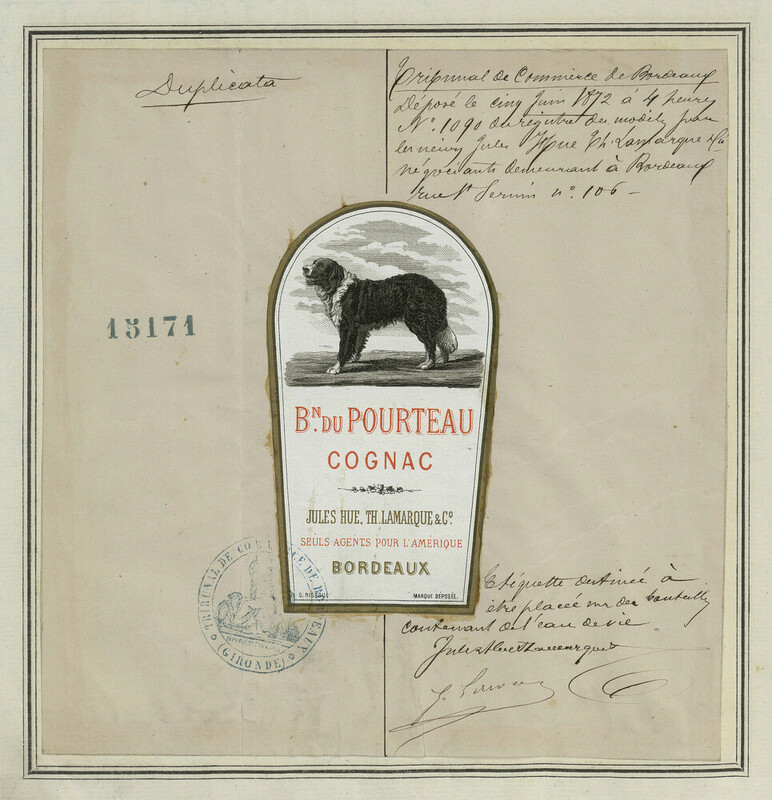 Duplicata
Tribunal de Commerce de Bordeaux
Déposé le cinq Juin 1872 à 4 heures
N°. 1090 du registre des modèles par
les sieurs Jules Hue Th. Lamarque & Cie
négociants demeurant à Bordeaux
rue St Sernin n°. 106 –
15171
BN. DU POURTEAU
COGNAC
JULES HUE, TH. LAMARQUE & CO.
SEULS AGENTS POUR L'AMÉRIQUE
BORDEAUX
MARQUE DÉPOSÉE.
TRIBUNAL DE COMMERCE DE BORDEAUX
(GIRONDE)
Etiquette destinée à
être placée sur des bouteilles
contenant de l'eau de vie